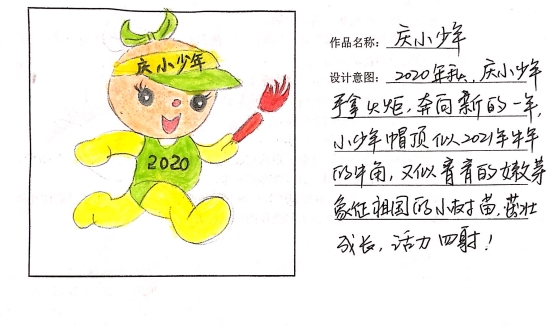 庆小少年
2020
作品名称：庆小少年
设计意图：2020年底，庆小少年
手拿火炬，奔向新的一年，
小少年帽顶似2021年牛年
的牛角，又似青青的嫩芽
象征祖国的小树苗，茁壮
成长，活力四射！